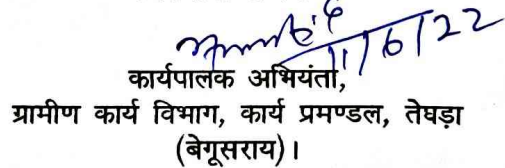 11/6/22
कार्यपालक अभियंता,
ग्रामीण कार्य विभाग, कार्य प्रमण्डल, तेघड़ा
(बेगूसराय)।